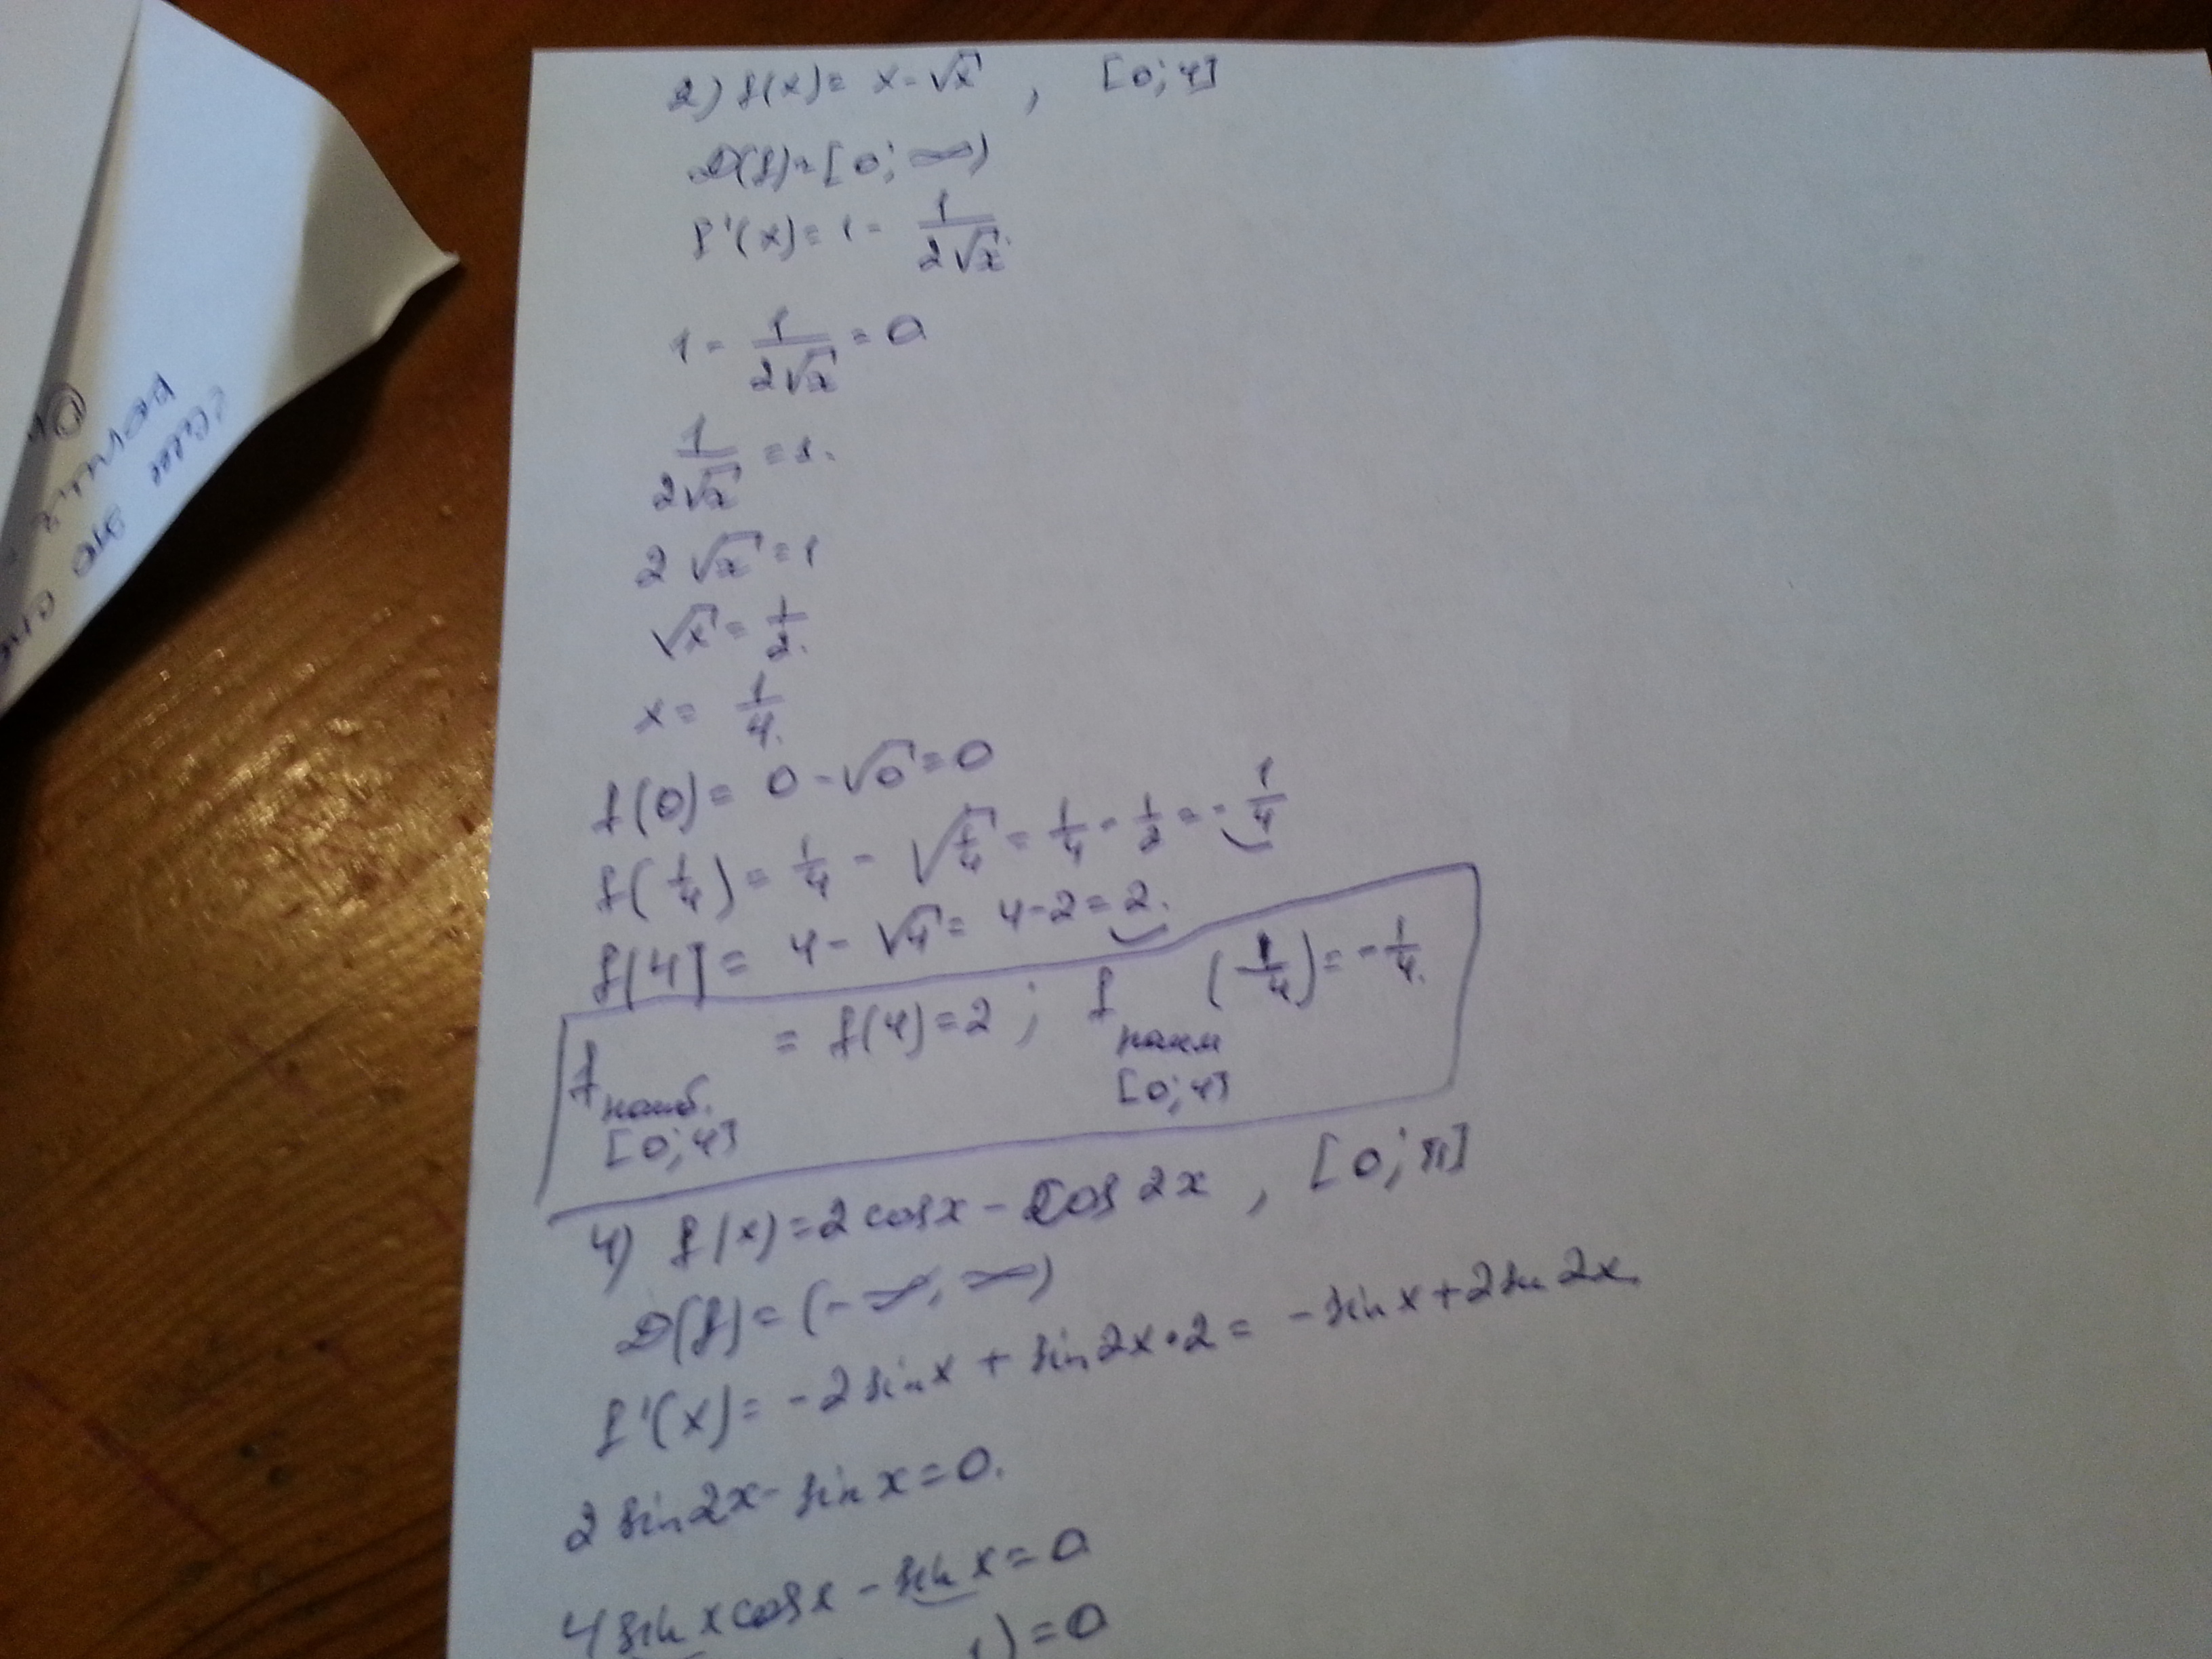 2) f(x) = x - √x , [0; 4]
D(f) = [0; ∞)
f'(x) = 1 - 1/(2√x).
1 - 1/(2√x) = 0
1/(2√x) = 1.
2√x = 1
√x = 1/2.
x = 1/4.
f(0) = 0 - √0 = 0
f(1/4) = 1/4 - √(1/4) = 1/4 - 1/2 = - 1/4
f(4] = 4 - √4 = 4 - 2 = 2.
f наиб. [0; 4] = f(4) = 2 ; f наим [0; 4] (1/4) = - 1/4.
4) f(x) = 2 cos x - cos 2x , [0; π]
D(f) = (-∞, ∞)
f'(x) = -2 sin x + sin 2x · 2 = - sin x + 2 sin 2x
2 sin 2x - sin x = 0.
4 sin x cos x - sin x = 0
1) = 0